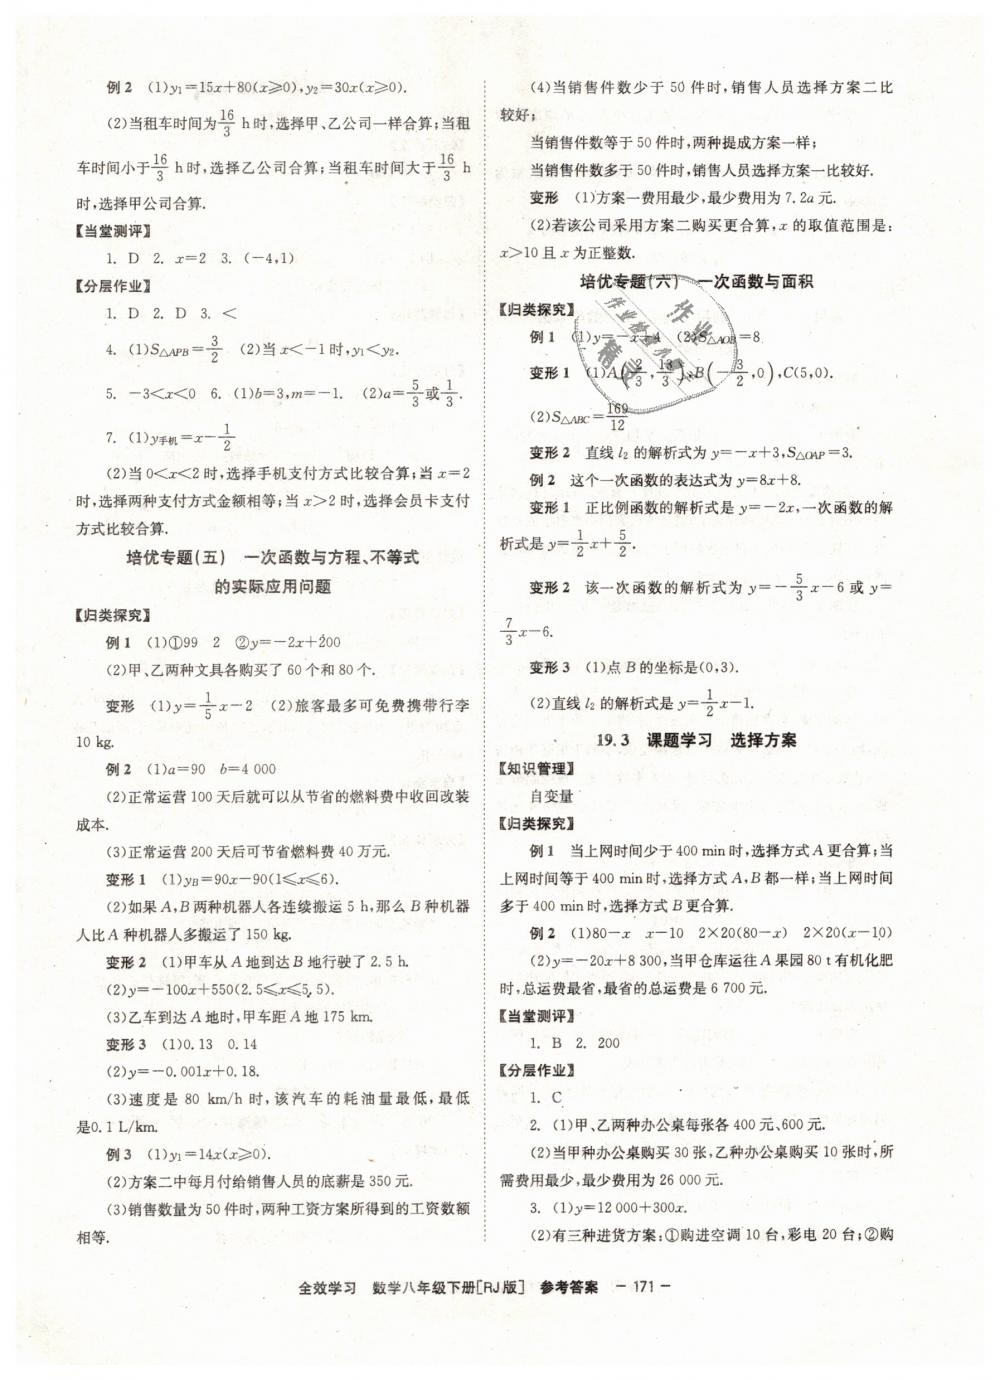 例2 (1)y₁=15x+80(x≥0),y₂=30x(x≥0).
(2)当租车时间为16/3 h时,选择甲、乙公司一样合算;当租
车时间小于16/3 h时,选择乙公司合算;当租车时间大于16/3 h
时,选择甲公司合算.
【当堂测评】
1. D 2. x=2 3. (-4,1)
【分层作业】
1. D 2. D 3. <
4. (1)S△APB=3/2 (2)当x<-1时,y₁<y₂.
5. -3<x<0 6. (1)b=3,m=-1. (2)a=5/3或1/3.
7. (1)y手机=x-1/2
(2)当0<x<2时,选择手机支付方式比较合算;当x=2
时,选择两种支付方式金额相等;当x>2时,选择会员卡支付
方式比较合算.
培优专题(五) 一次函数与方程、不等式
的实际应用问题
【归类探究】
例1 (1)①99 2 ②y=-2x+200
(2)甲、乙两种文具各购买了60个和80个.
变形 (1)y=1/5x-2 (2)旅客最多可免费携带行李
10 kg.
例2 (1)a=90 b=4 000
(2)正常运营100天后就可以从节省的燃料费中收回改装
成本.
(3)正常运营200天后可节省燃料费40万元.
变形1 (1)yB=90x-90(1≤x≤6).
(2)如果A,B两种机器人各连续搬运5 h,那么B种机器
人比A种机器人多搬运了150 kg.
变形2 (1)甲车从A地到达B地行驶了2.5 h.
(2)y=-100x+550(2.5≤x≤5.5).
(3)乙车到达A地时,甲车距A地175 km.
变形3 (1)0.13 0.14
(2)y=-0.001x+0.18.
(3)速度是80 km/h时,该汽车的耗油量最低,最低
是0.1 L/km.
例3 (1)y₁=14x(x≥0).
(2)方案二中每月付给销售人员的底薪是350元.
(3)销售数量为50件时,两种工资方案所得到的工资数额
相等.
(4)当销售件数少于50件时,销售人员选择方案二比
较好;
当销售件数等于50件时,两种提成方案一样;
当销售件数多于50件时,销售人员选择方案一比较好.
变形 (1)方案一费用最少,最少费用为7.2a元.
(2)若该公司采用方案二购买更合算,x的取值范围是:
x>10且x为正整数.
培优专题(六) 一次函数与面积
【归类探究】
例1 (1)y=-x+4 (2)S△AOB=8
变形1 (1)A(2/3,13/3),B(-3/2,0),C(5,0).
(2)S△ABC=169/12
变形2 直线l₂的解析式为y=-x+3,S△OAP=3.
例2 这个一次函数的表达式为y=8x+8.
变形1 正比例函数的解析式是y=-2x,一次函数的解
析式是y=1/2x+5/2.
变形2 该一次函数的解析式为y=-5/3x-6或y=
7/3x-6.
变形3 (1)点B的坐标是(0,3).
(2)直线l₂的解析式是y=1/2x-1.
19.3 课题学习 选择方案
【知识管理】
自变量
【归类探究】
例1 当上网时间少于400 min时,选择方式A更合算;当
上网时间等于400 min时,选择方式A,B都一样;当上网时间
多于400 min时,选择方式B更合算.
例2 (1)80-x x-10 2×20(80-x) 2×20(x-10)
(2)y=-20x+8 300,当甲仓库运往A果园80 t有机化肥
时,总运费最省,最省的总运费是6 700元.
【当堂测评】
1. B 2. 200
【分层作业】
1. C
2. (1)甲、乙两种办公桌每张各400元、600元.
(2)当甲种办公桌购买30张,乙种办公桌购买10张时,所
需费用最少,最少费用为26 000元.
3. (1)y=12 000+300x.
(2)有三种进货方案:①购进空调10台,彩电20台;②购
全效学习 数学八年级下册[RJ版] 参考答案 -171-